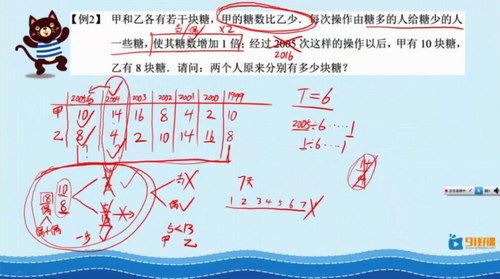 【例2】 甲和乙各有若干块糖,甲的糖数比乙少.每次操作由糖多的人给糖少的人
一些糖,使其糖数增加1倍;经过2005次这样的操作以后,甲有10块糖,
乙有8块糖.请问:两个人原来分别有多少块糖?
×2
2016
2005 2004 2003 2002 2001 2000 1999
甲 10 14 16 8 4 2 10
乙 8 4 2 10 14 16 8
T=6
2005÷6 ····1
1÷6 ····1
18
10
8
偶+偶
一步
奇
偶
5<13
甲 乙
7天
1 2 3 4 5 6 7
14
4